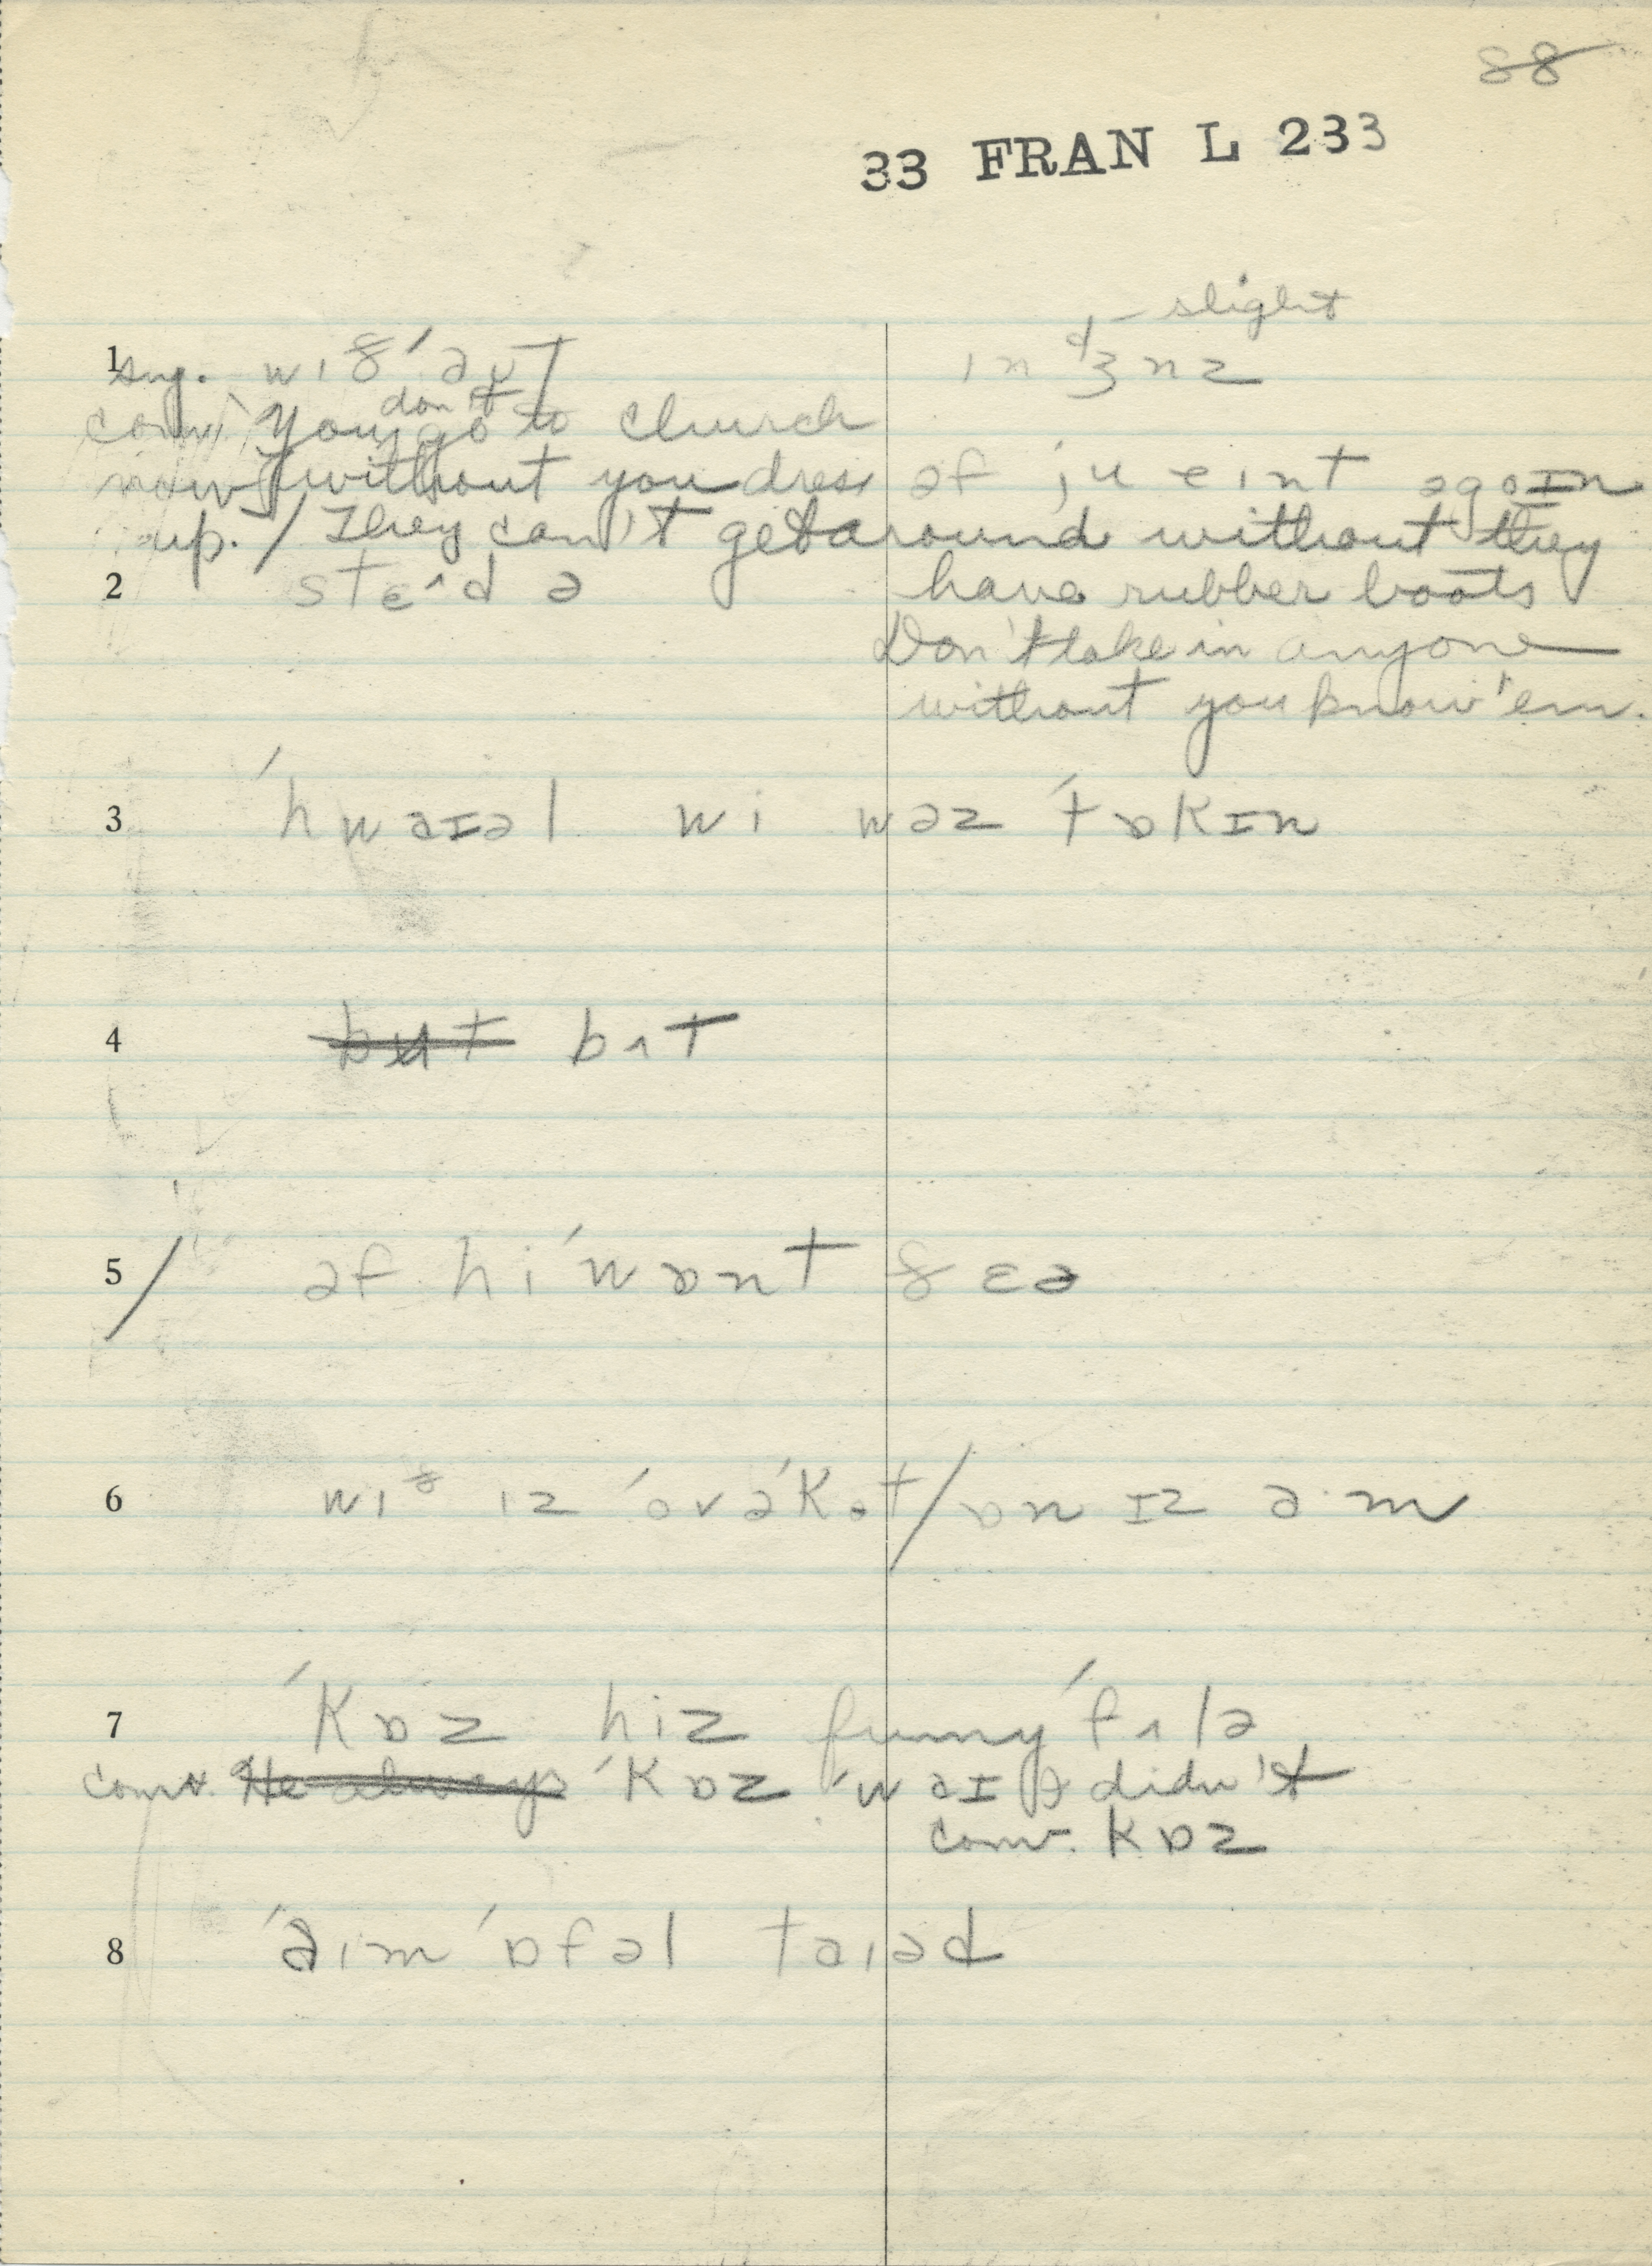 88
33 FRAN L 233
slight
1 sug. wɪð'aʊt ɪn dʒnz
conv. You don't go to church
now without you dress əf ju eɪnt agoɪn
up. / They can't get around without they
2 stɛˆd ə have rubber boots
Don't take in anyone
without you know 'em.
3 'hwaɪəl wi wəz 'tɒkɪn
4 but bʌt
5 / əf hi 'wɒnt ðɛə
6 wɪð ɪz 'ovə'kot / ɒn ɪz a·m
7 'kɒz hiz funny 'fʌlə
conv. He always 'kɒz 'waɪ I didn't
conv. kɒz
8 'aɪm 'ɒfəl taɪəd